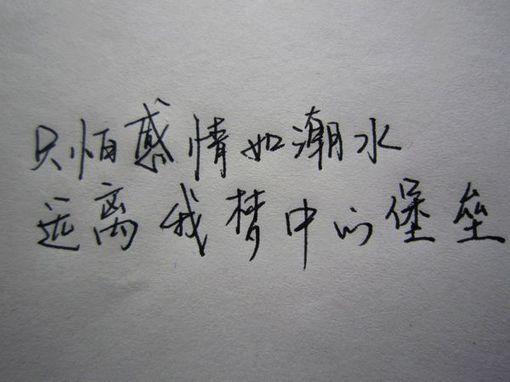 只怕感情如潮水
远离我梦中的堡垒